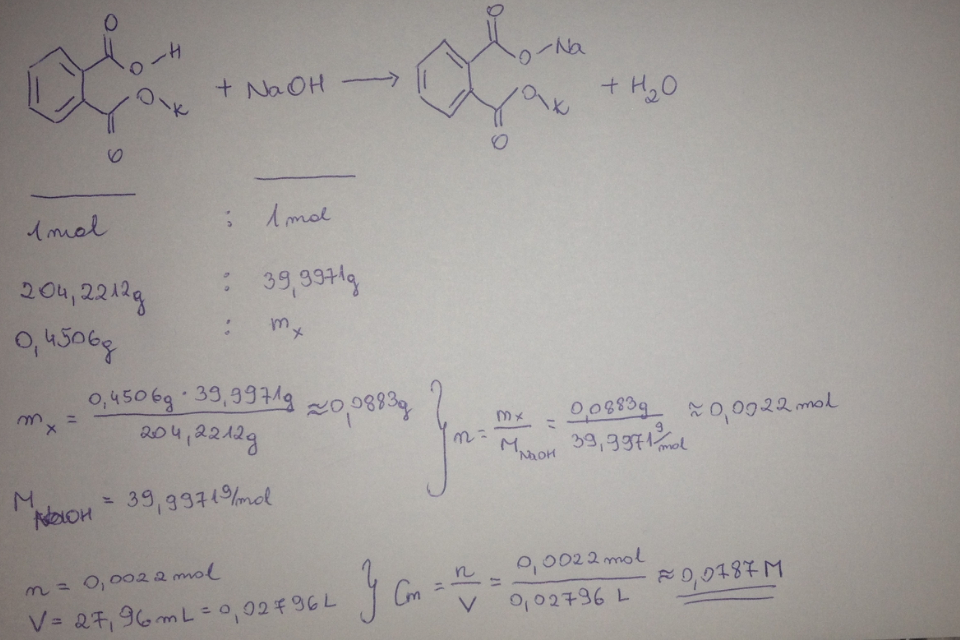 O O–H O–K O + NaOH → O O–Na O–K O + H₂O
1 mol : 1 mol
204,2212g : 39,9971g
0,4506g : mₓ
mₓ = 0,4506g · 39,9971g / 204,2212g ≈ 0,0883g } n = mₓ / M NaOH = 0,0883g / 39,9971 g/mol ≈ 0,0022 mol
M NaOH = 39,9971 g/mol
n = 0,0022 mol
V = 27,96 mL = 0,02796 L } Cm = n / V = 0,0022 mol / 0,02796 L ≈ 0,0787 M